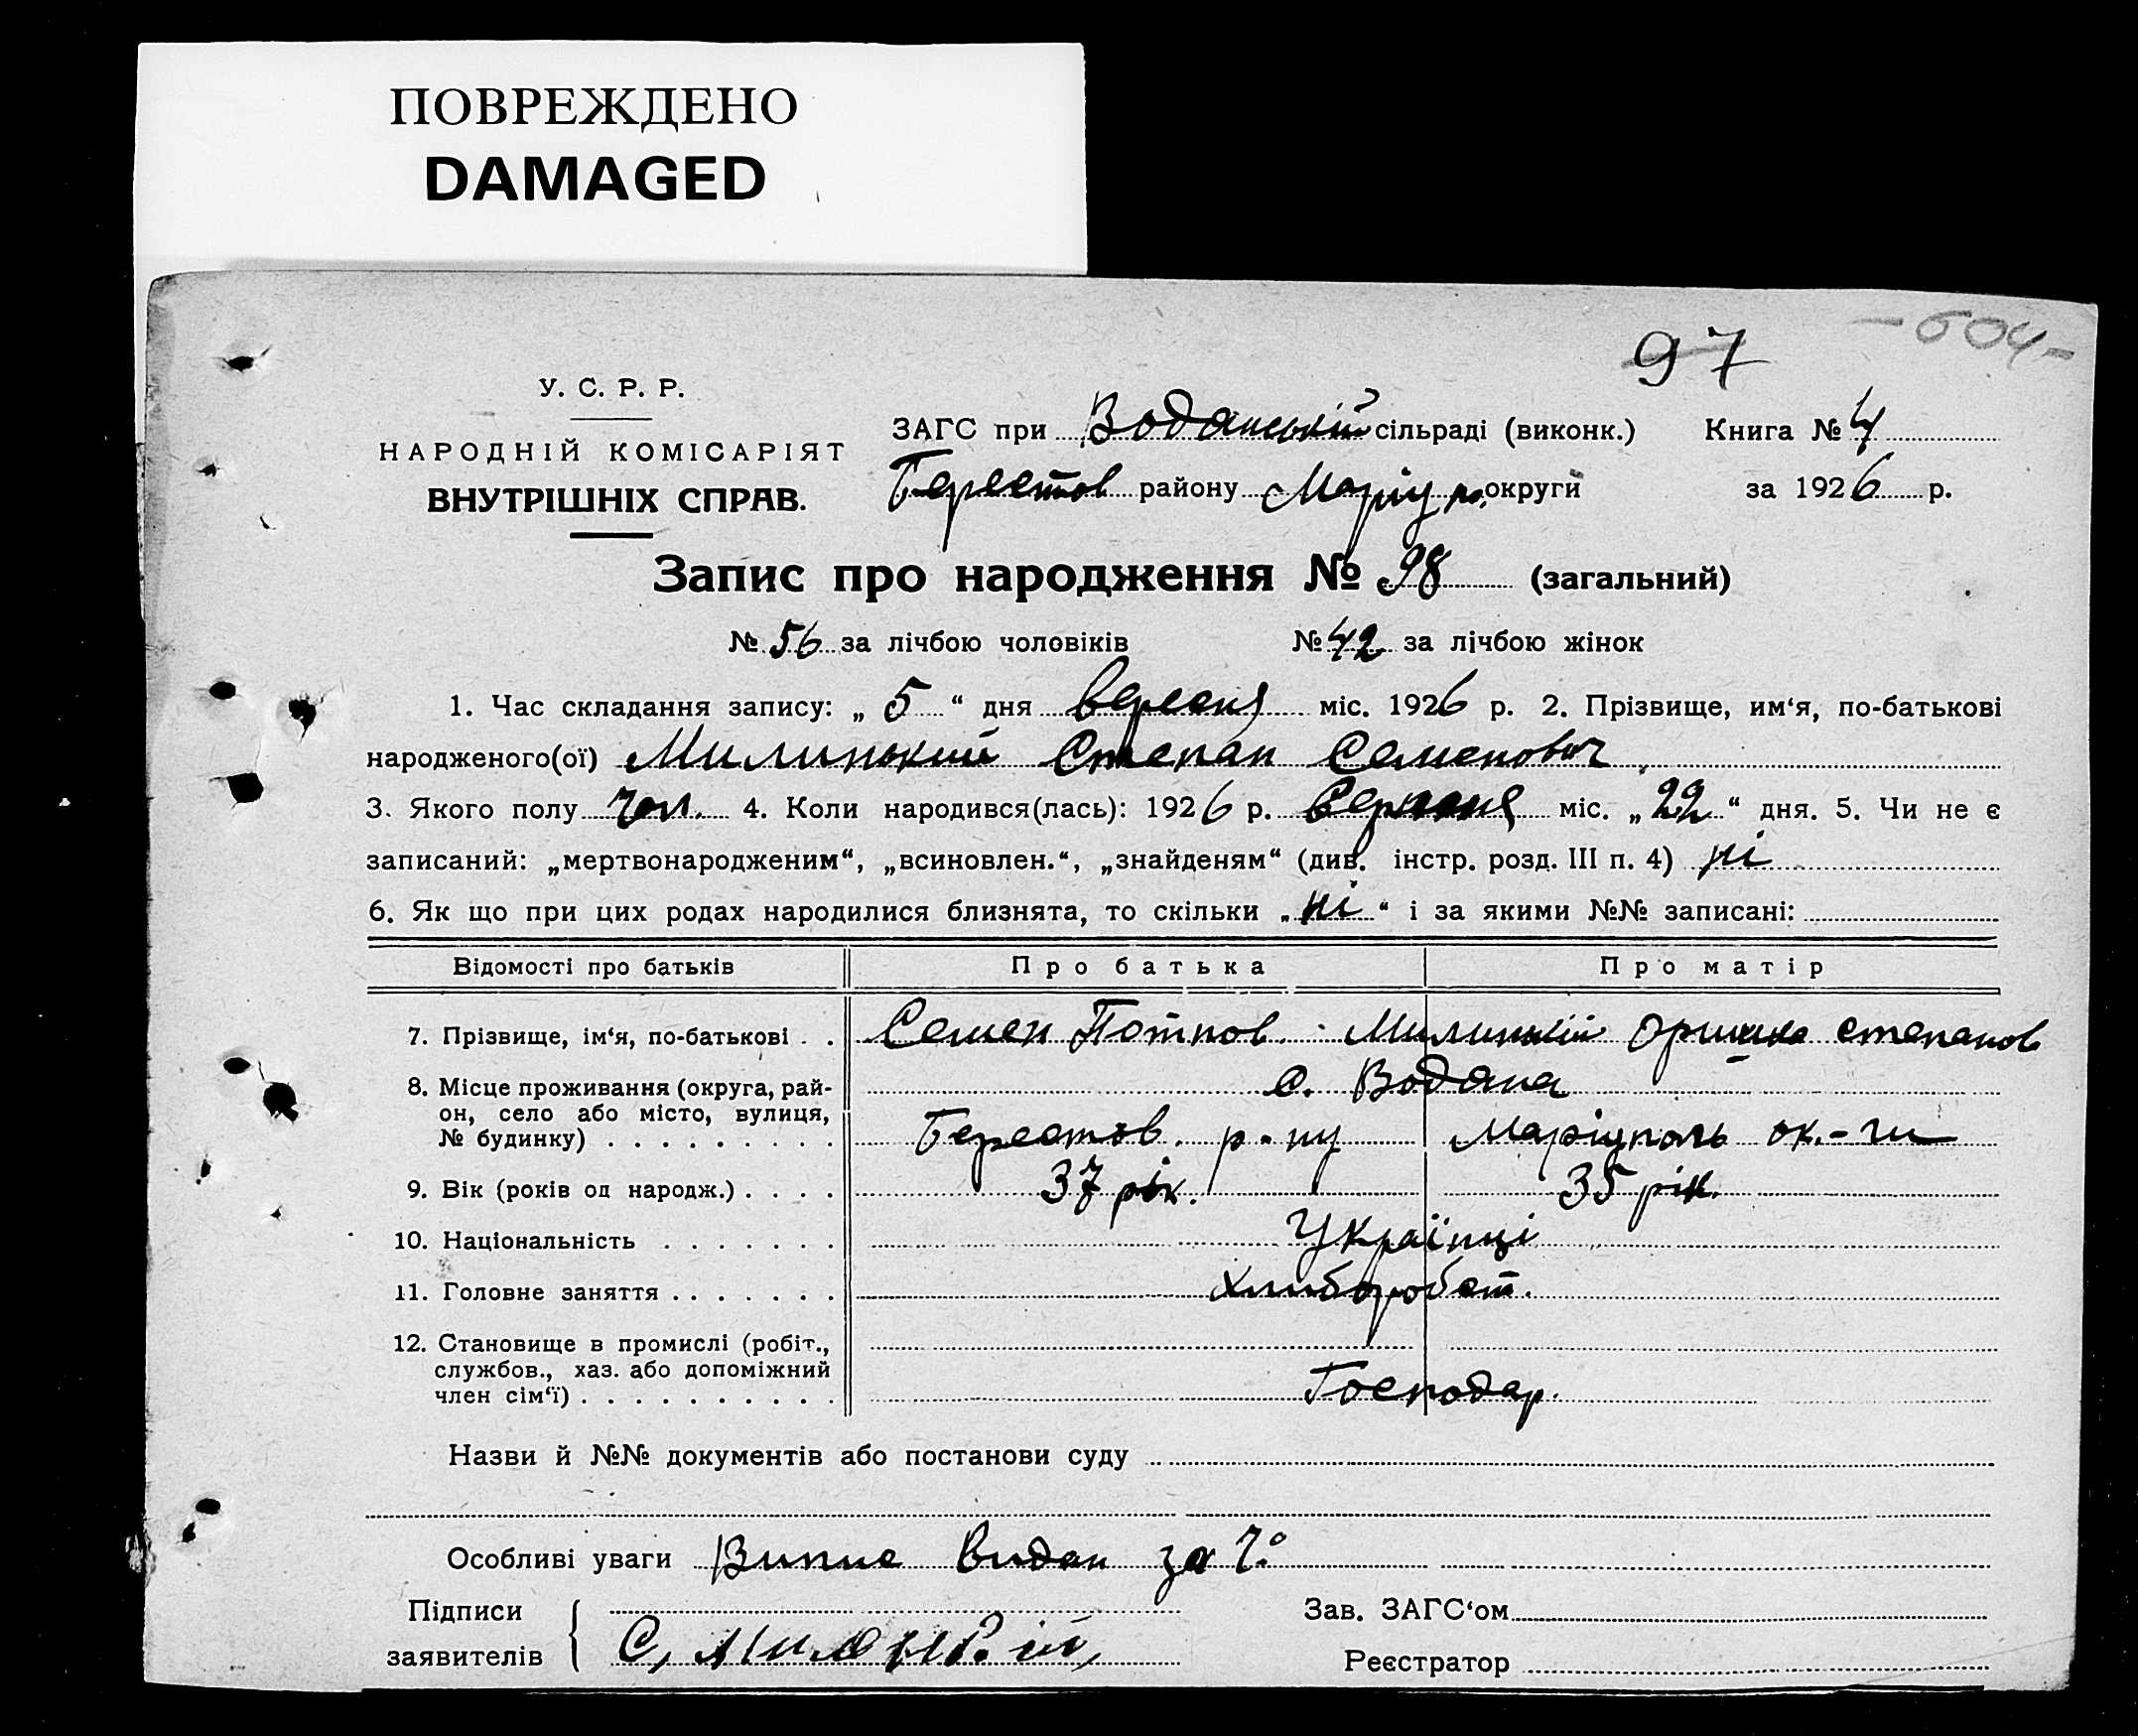 ПОВРЕЖДЕНО
DAMAGED
97 -604-
У. С. Р. Р.
НАРОДНІЙ КОМІСАРІЯТ
ВНУТРІШНІХ СПРАВ.
ЗАГС при Воданській сільраді (виконк.) Книга № 4
Берестов району Маріуп. округи за 1926 р.
Запис про народження № 98 (загальний)
№ 56 за лічбою чоловіків № 42 за лічбою жінок
1. Час складання запису: „ 5 “ дня вересня міс. 1926 р. 2. Прізвище, им‘я, по-батькові
народженого(ої) Милинький Степан Семенович
3. Якого полу чол. 4. Коли народився(лась): 1926 р. Серпня міс. „ 22 “ дня. 5. Чи не є
записаний: „мертвонародженим“, „всиновлен.“, „знайденям“ (див. інстр. розд. III п. 4) ні
6. Як що при цих родах народилися близнята, то скільки „ ні “ і за якими №№ записані:
Відомості про батьків Про батька Про матір
7. Прізвище, ім‘я, по-батькові . . Семен Милинький степанов
8. Місце проживання (округа, рай-
он, село або місто, вулиця,
№ будинку) . . . . . . . . .
с. Водяна
Берестов. р-ну Маріуполь ок.-ги
9. Вік (років од народж.) . . . . 37 рік. 35 рік.
10. Національність . . . . . . . Українці
11. Головне заняття . . . . . . . хлиборобст.
12. Становище в промислі (робіт.,
службов., хаз. або допоміжний
член сім‘ї) . . . . . . . . . . Господар.
Назви й №№ документів або постанови суду
Особливі уваги Випис видан за
Підписи
заявителів
С,
Зав. ЗАГС‘ом
Реєстратор